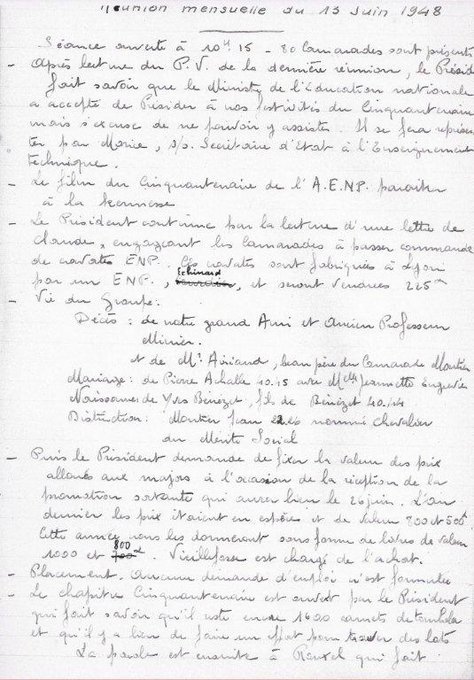 Réunion mensuelle du 13 Juin 1948
Séance ouverte à 10h15 - 80 Camarades sont présents
- Après lecture du P.V. de la dernière réunion, le Présid
fait savoir que le Ministre de l'Éducation nationale
a accepté de Présider à nos festivités du Cinquantenaire
mais s'excuse de ne pouvoir y assister. Il se fera représen
ter par Morice, s/s. Secrétaire d'Etat à l'Enseignement
technique.
- Le film du Cinquantenaire de l'A.E.NP. paraîtra
à la
- Le Président continue par la lecture d'une lettre de
Claude, engageant les Camarades à passer commande
de cravates ENP. Ces cravates sont fabriquées à Lyon
par un ENP., Echinard, et seront vendues 225
- Vie du Groupe:
Décès : de notre grand Ami et Ancien Professeur
Minier.
et de Mr beau père du Camarade Moutien
Mariage : de Pierre Achalle 10.15 avec Melle Jeannette
Naissances de Yves Bénézet, fils de Bénézet 40.44
Distinction : Moutien Jean nommé Chevalier
du Mérite Social
- Puis le Président demande de fixer la valeur des prix
alloués aux majors à l'occasion de la réception de la
promotion sortante qui aura lieu le 26 juin. L'an
dernier les prix étaient en espèces et de valeur 800 et 500
Cette année nous les donnerons sous forme de livres de valeur
1000 et 800. Vieillefosse est chargé de l'achat.
- Placement. Aucune demande d'emploi n'est formulée
- Le chapitre Cinquantenaire est ouvert par le Président
qui fait savoir qu'il reste encore 1600 carnets de tombola
et qu'il y a lieu de faire un effort pour trouver des lots
La parole est ensuite à qui fait